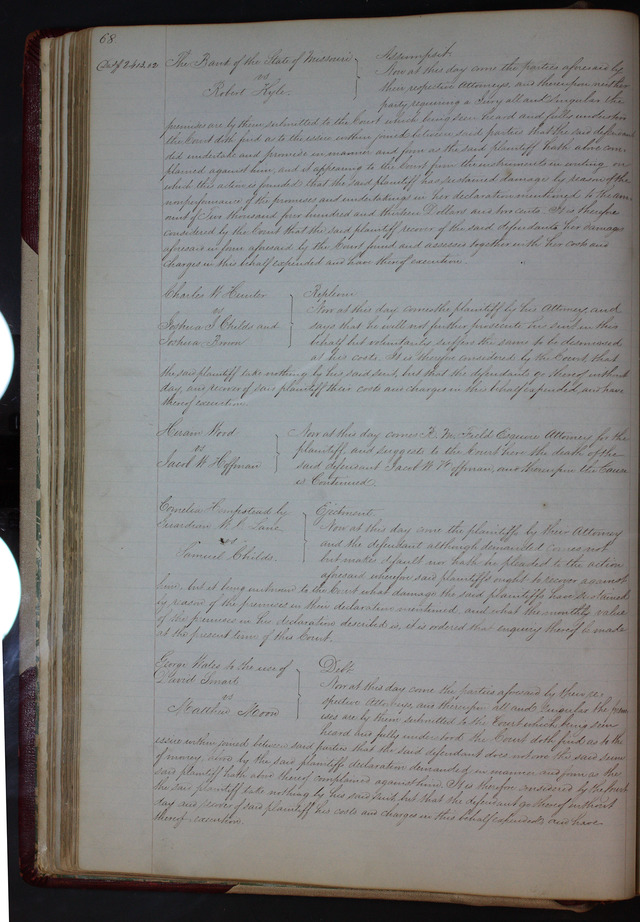 68.
The Bank of the State of Missouri
vs
Robert Kyle.
Assumpsit.
Now at this day come the parties aforesaid by
their respective Attorneys, and thereupon neither
party requiring a Jury all and Singular the
premises are by them submitted to the Court which being seen heard and fully understood
the Court doth find as to the issue within joined between said parties that the said defendant
did undertake and promise in manner and form as the said plaintiff hath above com-
plained against him, and it appearing to the Court from the instruments in writing on
which this action is founded that the said plaintiff has sustained damages by reason of the
nonperformance of the promises and undertakings in her declaration mentioned to the am-
ount of thousand hundred and thirteen Dollars and two cents. It is therefore
considered by the Court that the said plaintiff recover of the said defendant her damages
aforesaid in form aforesaid by the Court found and assessed together with her costs and
charges in this behalf expended and have thereof execution.
Charles W Hunter
vs
Joshua S Childs and
Joshua Brown
Replevin
Now at this day comes the plaintiff by his Attorney, and
says that he will not further prosecute his suit in this
behalf but voluntarily suffers the same to be dismissed
at his costs. It is therefore considered by the Court, that
the said plaintiff take nothing by his said suit, but that the defendants go thereof without
day and recover of said plaintiff their costs and charges in this behalf expended, and have
thereof execution.
Hiram Wood
vs
Jacob W Hoffman
Now at this day comes R. M. Field Esquire Attorney for the
plaintiff and suggests to the Court here the death of the
said defendant Jacob W Hoffman, and thereupon the Cause
is Continued.
Cornelia Hempstead by
Guardian W. C. Lane
vs
Samuel Childs.
Ejectment.
Now at this day come the plaintiffs by their Attorney
and the defendant although demanded comes not
but makes default nor hath he pleaded to the action
aforesaid wherefore said plaintiffs ought to recover against
him, but it being unknown to the Court what damage the said plaintiffs have sustained
by reason of the premises in their declaration mentioned and what the monthly value
of the premises in the declaration described is, it is ordered that enquiry thereof be made
at the present term of this Court.
George Wales to the use of
David Smart
vs
Matthew Moon
Debt.
Now at this day come the parties aforesaid by their re-
spective Attorneys, and thereupon all and Singular the prem-
ises are by them submitted to the Court which being seen
heard and fully understood the Court doth find as to the
issue within joined between said parties that the said defendant does not owe the said sum
of money above by the said plaintiffs declaration demanded in manner and form as the
said plaintiff hath above thereof complained against him. It is therefore considered by the Court
the said plaintiff take nothing by his said suit, but that the defendant go thereof without
day and recover of said plaintiff his costs and charges in this behalf expended, and have
thereof execution.